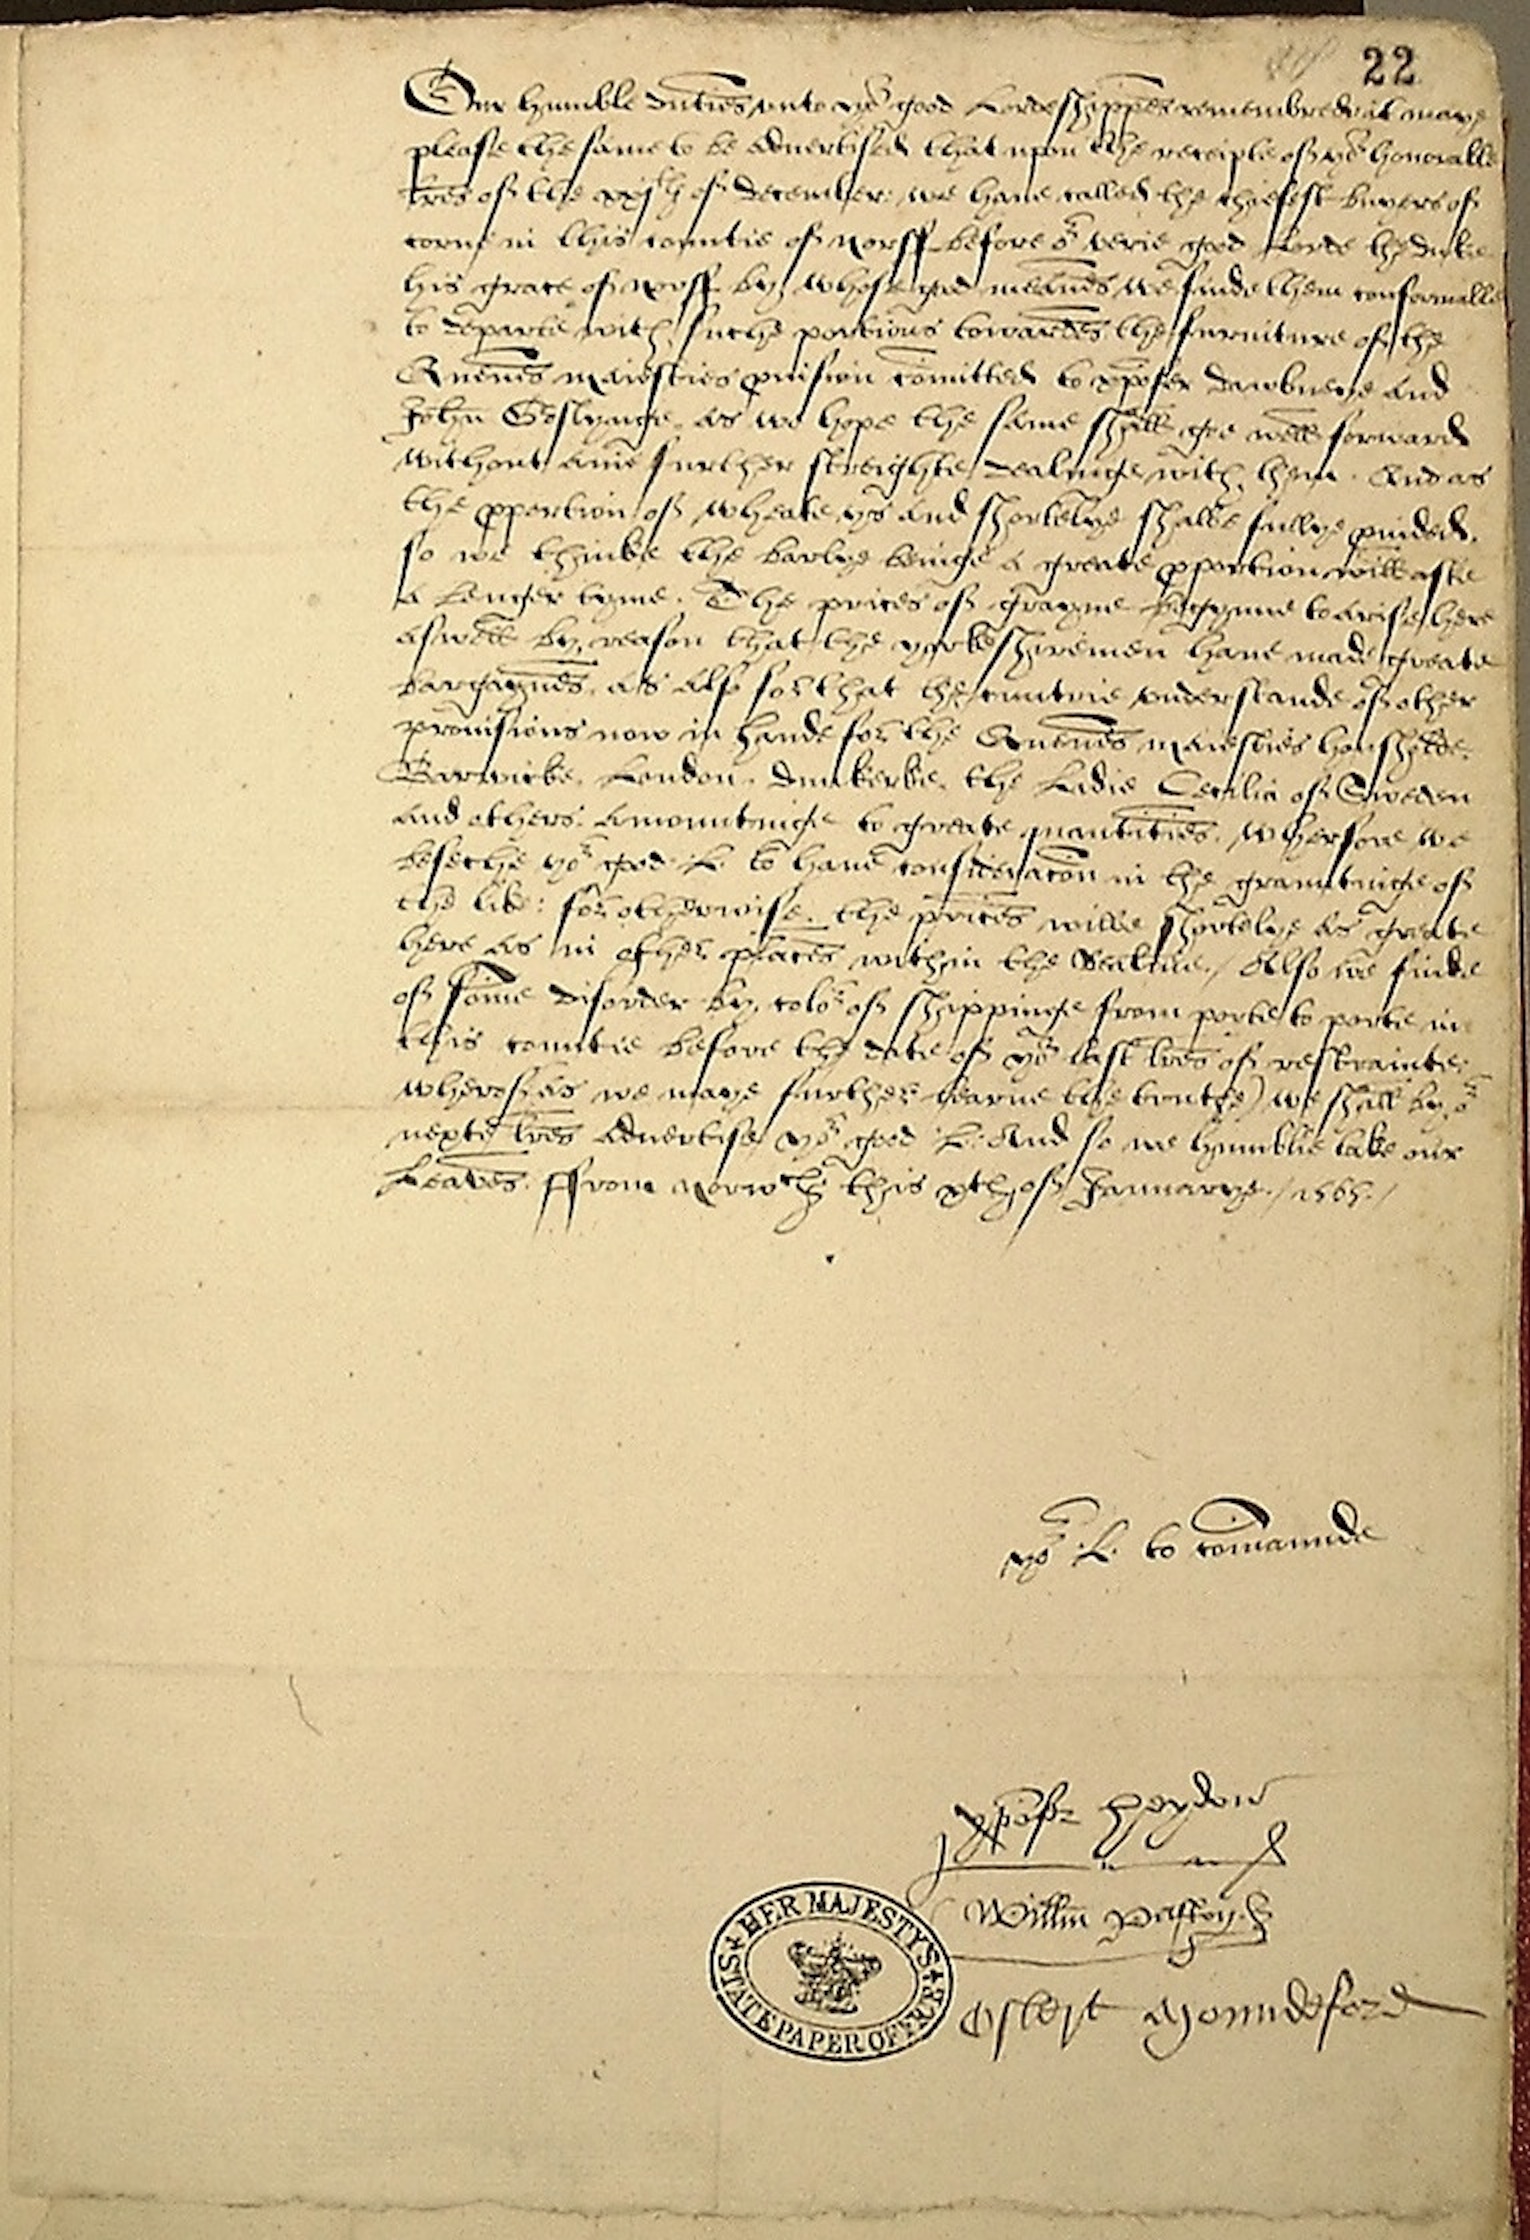 22
Our humble duties unto yor good Lordeshippes remembred, it maye
please the same to be advertised that upon the receipte of yor honorable
lres of the xxjth of december: we have called the chiefest buyers of
corne in this countie of Norff before or verie good Lorde the duke
his grace of Norff by whose good meanes we finde them conformable
to departe with suche portions towardes the furniture of the
Quenes maiesties pvision comitted to xpofer Dawbneye and
John Goslynge, as we hope the same shall goe well forward
without anie further streighte dealinge with them. And as
the pportion of wheate ys and shortelye shalbe fullye pvided,
so we thinke the barlye beinge a greate pportion will aske
a lenger tyme. The prices of grayne begynne to arise here
aswell by reason that the yorkeshiremen have made greate
bargaynes, as also for that the cuntrie understande of other
provisions now in hande for the Quenes maiesties housholde,
Barwicke, London, Dunkerke, the Ladie Cecilia of Sweden
and others, amountinge to greate quantities. Wherfore we
beseche yor good L. to have consideracon in the grauntinge of
the like: for otherwise, the prices wilbe shortelye as greate
here as in other places within the Realme./ Also we finde
of some disorder by color of shippinge from porte to porte in
this countie before the date of yor last lres of restrainte
wherof (as we maye further learne the truthe) we shall by or
nexte lres advertise yor good L. And so we humblie take our
Leaves. ffrom Norwch this xth of Januarye./ 1565./
yor L. to comaunde
xpofer heydon
Willm Paston
Osbert Moundeford
HER MAJESTY'S STATE PAPER OFFICE